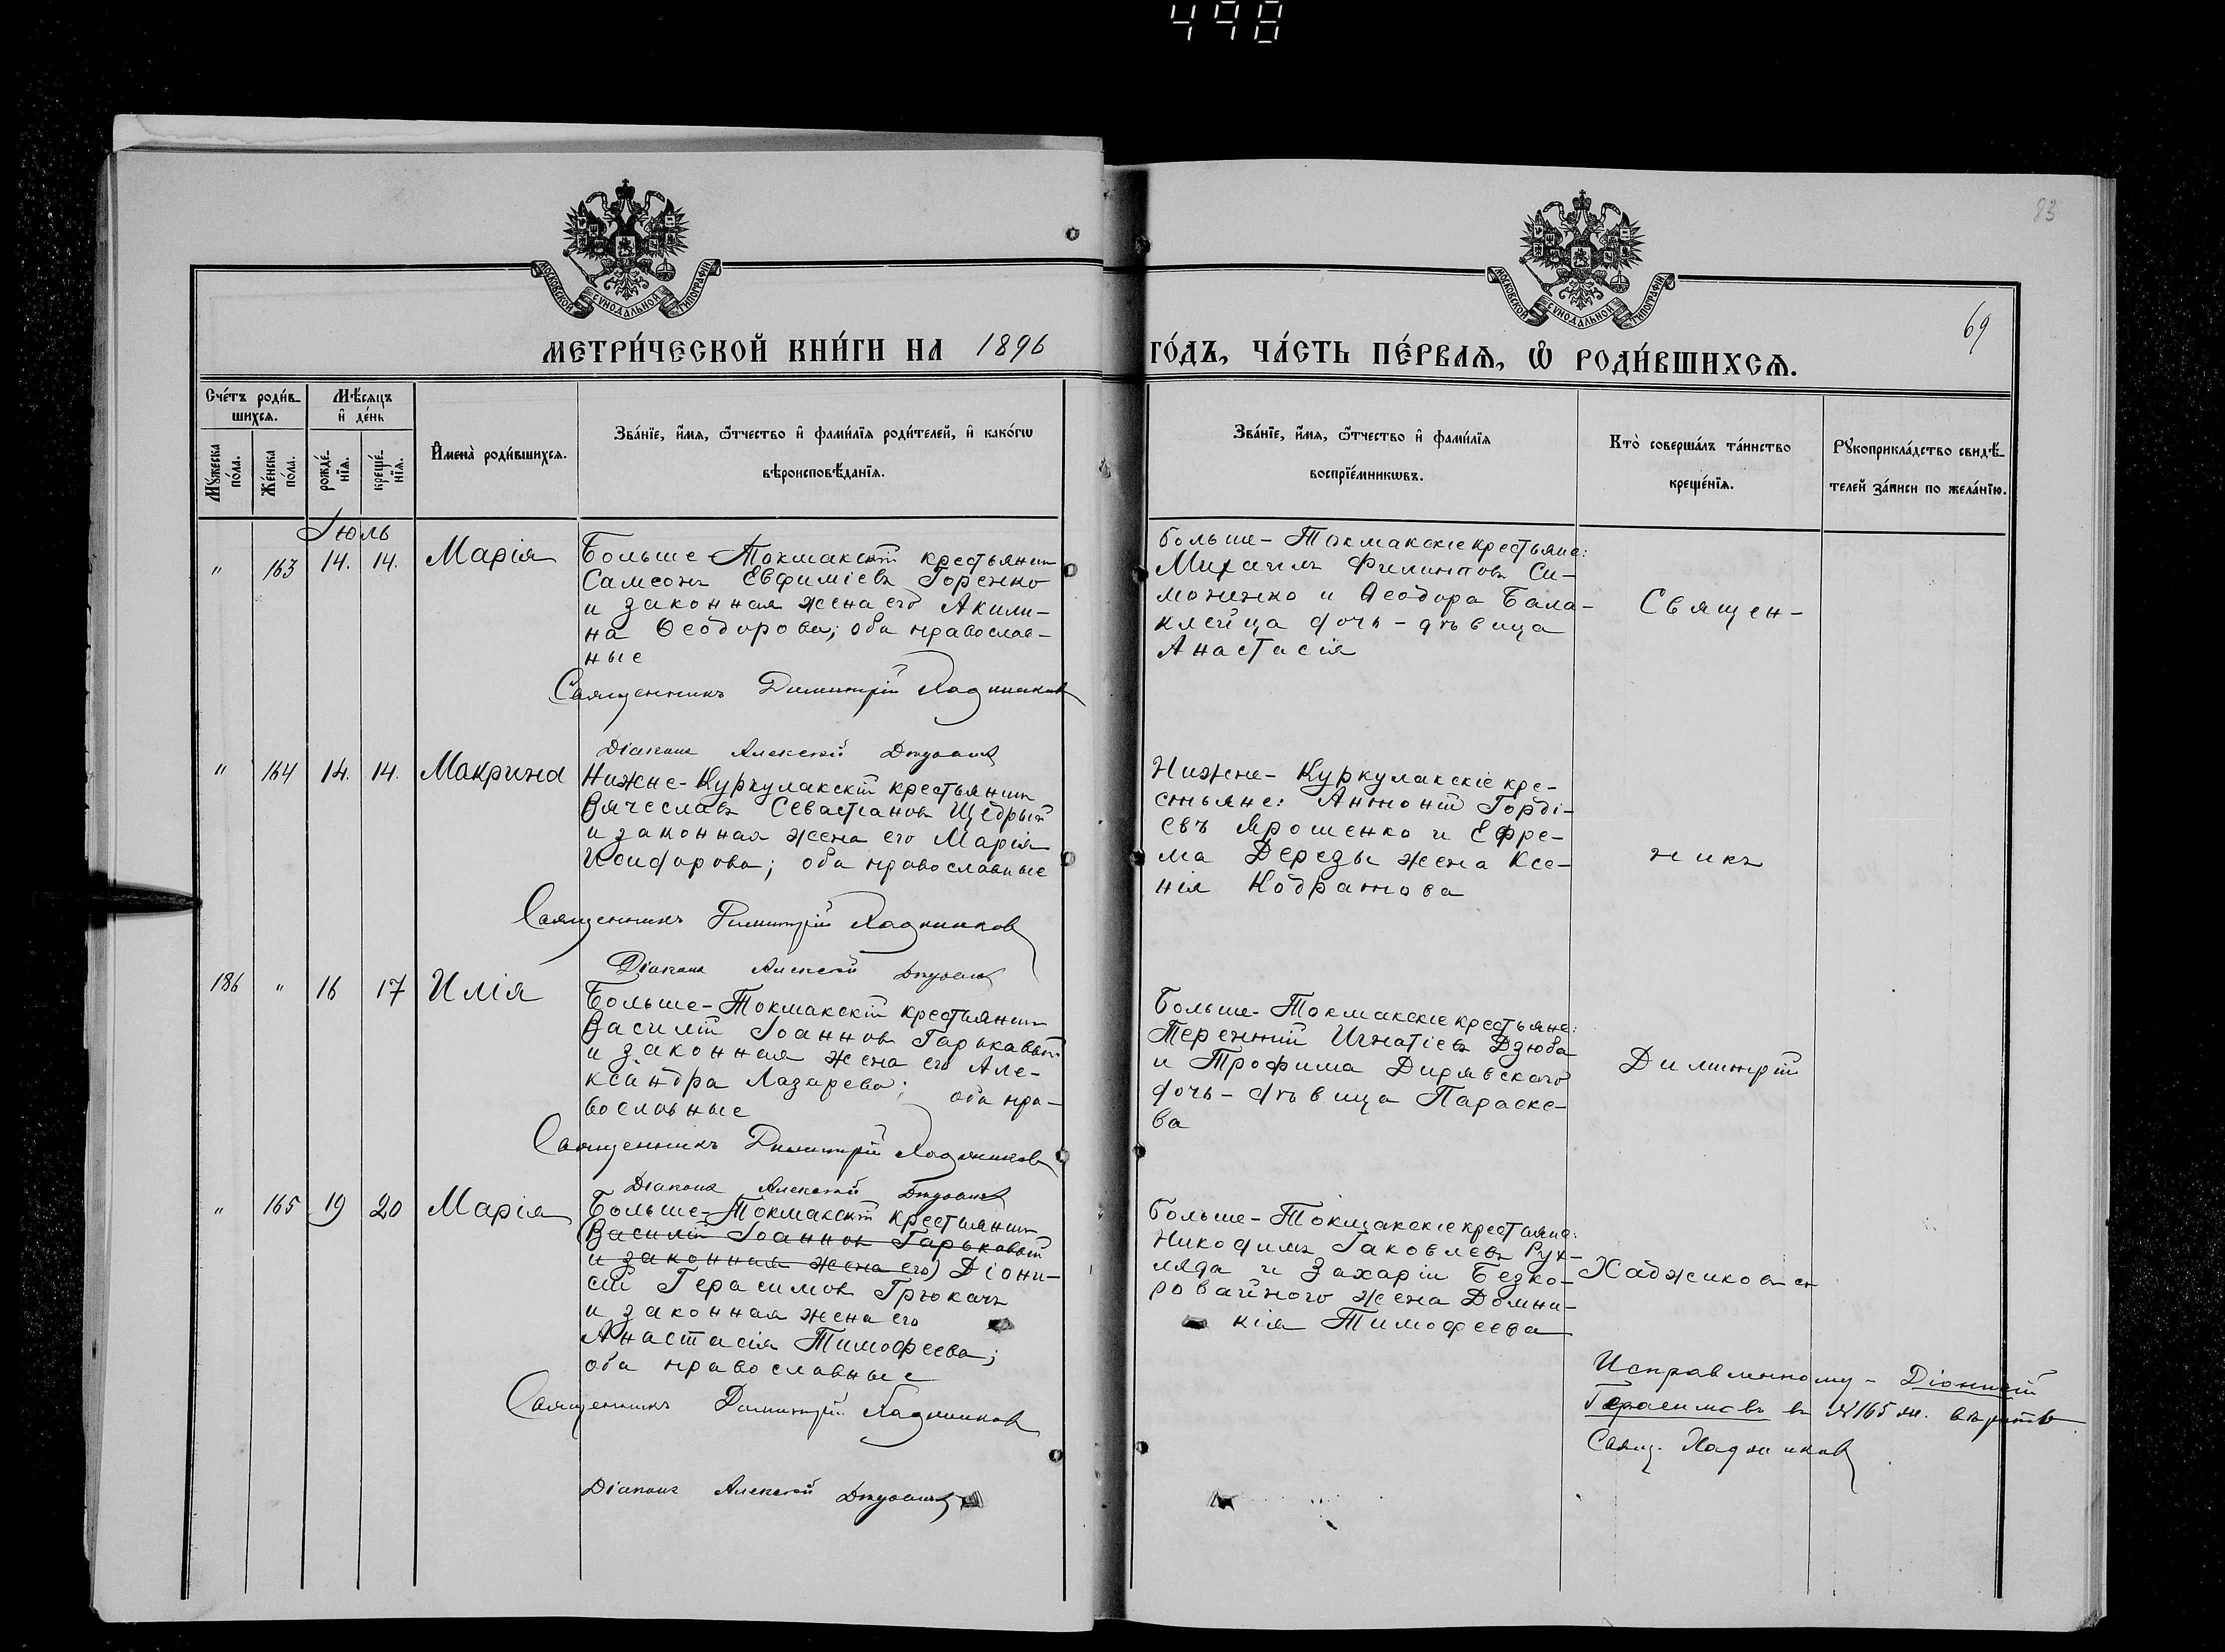 498
83
МОСКОВСКОЙ СУНОДАЛЬНОЙ ТИПОГРАФІИ
МОСКОВСКОЙ СУНОДАЛЬНОЙ ТИПОГРАФІИ
69
МЕТРИ́ЧЕСКОЙ КНИ́ГИ НА 1896
ГО́ДЪ, ЧА́СТЬ ПЕ́РВАѦ, Ѡ҆ РОДИ́ВШИХСѦ.
Сче́тъ роди́в-
шихсѧ.
Мѣ́сѧцъ
и҆ де́нь
Мꙋ́жеска
по́ла.
Же́нска
по́ла.
рожде́-
нїѧ.
креще́-
нїѧ.
И҆мена̀ роди́вшихсѧ.
Зва́нїе, и҆́мѧ, ѻ҆́тчество и҆ фами́лїѧ роди́телей, и҆ како́гѡ
вѣроисповѣ́данїѧ.
Зва́нїе, и҆́мѧ, ѻ҆́тчество и҆ фами́лїѧ
воспрїе́мникѡвъ.
Кто̀ соверша́лъ та́инство
креще́нїѧ.
Рꙋкоприкла́дство свидѣ́-
телей за́писи по жела́нїю.
Іюль
" 163 14. 14. Марія
Больше-Токмакскій крестьянин
Самсонъ Евфиміевъ Горенко
и законная жена его Акили-
на Ѳеодорова; оба православ-
ные
Священникъ Димитрій Хаджиковъ
Діаконъ Алексѣй
Больше-Токмакскіе крестьяне:
Михаилъ Филиповъ Си-
моненко и Ѳеодора Бала-
клейца дочь-дѣвица
Анастасія
Священ-
" 164 14. 14. Макрина
Нижне-Куркулакскій крестьянинъ
Вячеславъ Севастіановъ Щедрый
и законная жена его Марія
Никифорова; оба православные
Священникъ Димитрій Хаджиковъ
Діаконъ Алексѣй
Нижне-Куркулакскіе кре-
стьяне: Антоній Горді-
евъ Ярошенко и Ефре-
ма Дерезы жена Ксе-
нія Кодратова
никъ
186 " 16 17 Илія
Больше-Токмакскій крестьянинъ
Василій Іоанновъ Гаркавый
и законная жена его Але-
ксандра Лазарева; оба пра-
вославные
Священникъ Димитрій Хаджиковъ
Діаконъ Алексѣй
Больше-Токмакскіе крестьяне:
Терентій Игнатіевъ Дзюба
и Трофима Дирявского
дочь-дѣвица Параске-
ва
Димитрій
" 165 19 20 Марія
Больше-Токмакскій крестьянинъ
(Василій Іоанновъ Гарьковый
и законная жена его) Діони-
сій Герасимовъ Грюкачъ
и законная жена его
Анастасія Тимофеева;
оба православные
Священникъ Димитрій Хаджиковъ
Діаконъ Алексѣй
Больше-Токмакскіе крестьяне:
Никодимъ Іаковлевъ Рух-
ляда и Захаріи Безко-
ровайного жена Домни-
кія Тимофеева
Хаджиковъ
Исправленному - Діонисій
Герасимовъ въ №165 вѣрить
Свящ. Хаджиковъ